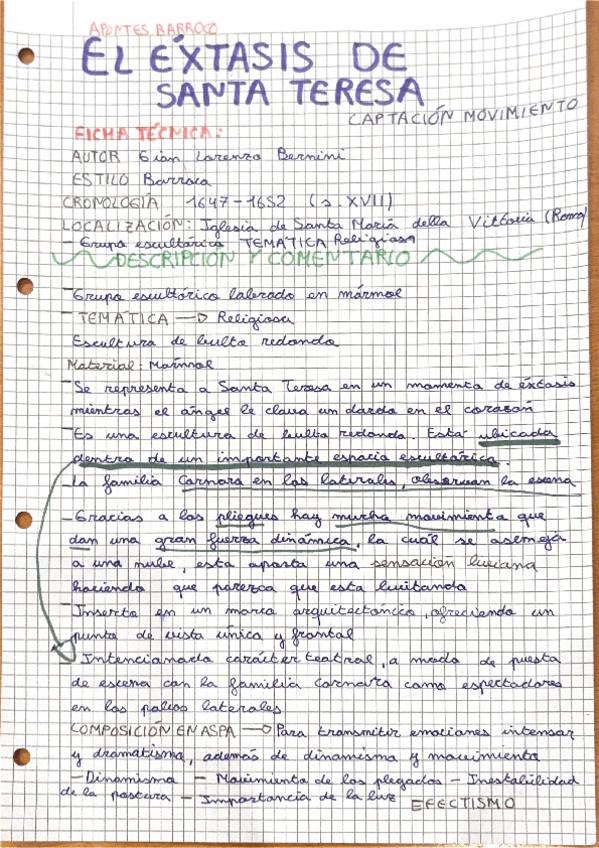 APUNTES BARROCO
EL ÉXTASIS DE
SANTA TERESA
CAPTACIÓN MOVIMIENTO
FICHA TÉCNICA:
AUTOR Gian Lorenzo Bernini
ESTILO Barroca
CRONOLOGÍA 1647-1652 (s. XVII)
LOCALIZACIÓN: Iglesia de Santa María della Vittoria (Roma)
- Grupo escultórico TEMÁTICA Religiosa
DESCRIPCIÓN Y COMENTARIO
- Grupo escultórico laborado en mármol
- TEMÁTICA → Religiosa
Escultura de bulto redondo
Material: Mármol
- Se representa a Santa Teresa en un momento de éxtasis
mientras el ángel le clava un dardo en el corazón
- Es una escultura de bulto redondo. Está ubicada
dentro de un importante espacio escultórico.
- La familia Cornara en los laterales, observan la escena
- Gracias a los pliegues hay mucho movimiento que
dan una gran fuerza dinámica, la cuál se asemeja
a una nube, esta aporta una sensación liviana
haciendo que parezca que esta levitando
- Inserto en un marco arquitectónico, ofreciendo un
punto de vista único y frontal
- Intencionado carácter teatral, a modo de puesta
de escena con la familia Cornara como espectadores
en los palcos laterales
COMPOSICIÓN EN ASPA → Para transmitir emociones intensas
y dramatismo, además de dinamismo y movimiento
- Dinamismo - Movimiento de los plegados - Inestabilidad
de la postura - Importancia de la luz EFECTISMO